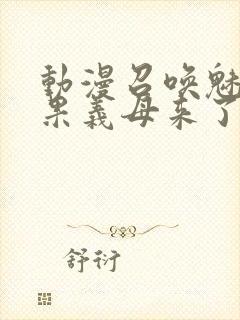 動漫召喚魅
果義母來了
舒衍